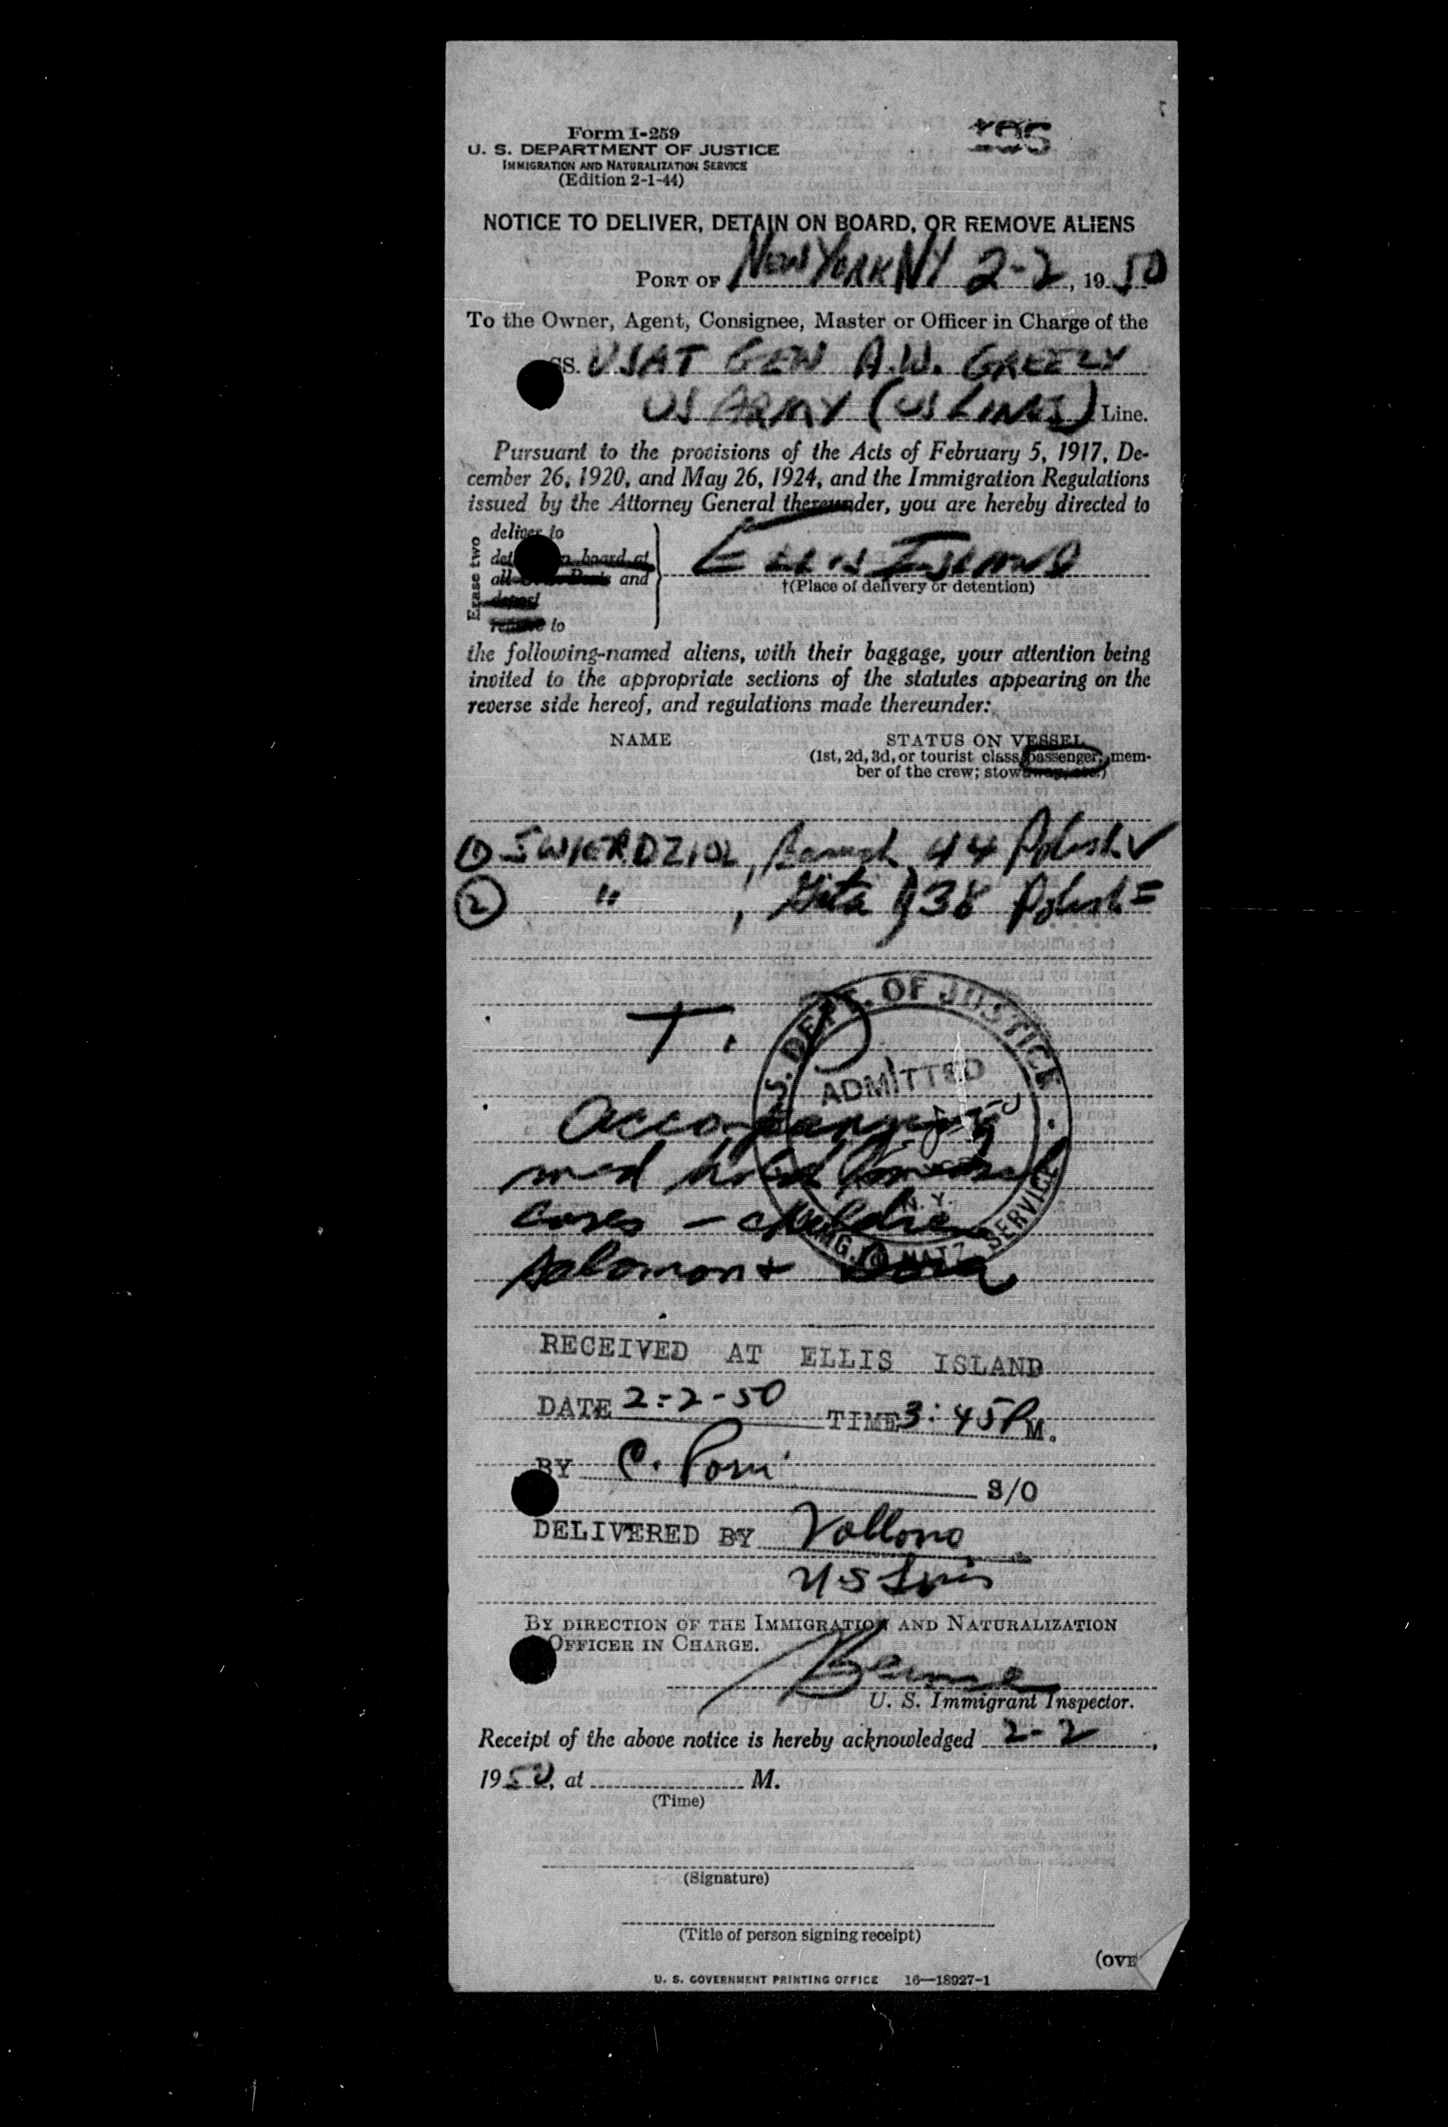 Form I-259
U. S. DEPARTMENT OF JUSTICE
IMMIGRATION AND NATURALIZATION SERVICE
(Edition 2-1-44)
195
NOTICE TO DELIVER, DETAIN ON BOARD, OR REMOVE ALIENS
PORT OF NEW YORK NY 2-2, 1950
To the Owner, Agent, Consignee, Master or Officer in Charge of the
SS. USAT GEN A.W. GREELY
US ARMY (US LINES) Line.
Pursuant to the provisions of the Acts of February 5, 1917, De-
cember 26, 1920, and May 26, 1924, and the Immigration Regulations
issued by the Attorney General thereunder, you are hereby directed to
Erase two
deliver to
on board at
all and
deport
remove to
ELLIS ISLAND
†(Place of delivery or detention)
the following-named aliens, with their baggage, your attention being
invited to the appropriate sections of the statutes appearing on the
reverse side hereof, and regulations made thereunder:
NAME
STATUS ON VESSEL
(1st, 2d, 3d, or tourist class passenger; mem-
ber of the crew; stowaway, etc.)
(1) SWIERDZIOL, Baruch 44 Polish ✓
(2) " , Gita 38 Polish =
T. D
U.S. DEPT. OF JUSTICE
ADMITTED
N. Y.
IMMIG. & NATZ. SERVICE
Accompanying
med hold measel
cases - children
Salomon + Dora
RECEIVED AT ELLIS ISLAND
DATE 2-2-50 TIME 3:45 P M.
BY C. S/O
DELIVERED BY Vallono
US Lines
BY DIRECTION OF THE IMMIGRATION AND NATURALIZATION
OFFICER IN CHARGE.
U. S. Immigrant Inspector.
Receipt of the above notice is hereby acknowledged 2-2,
1950, at M.
(Time)
(Signature)
(Title of person signing receipt)
(OVE
U. S. GOVERNMENT PRINTING OFFICE 16—18927-1